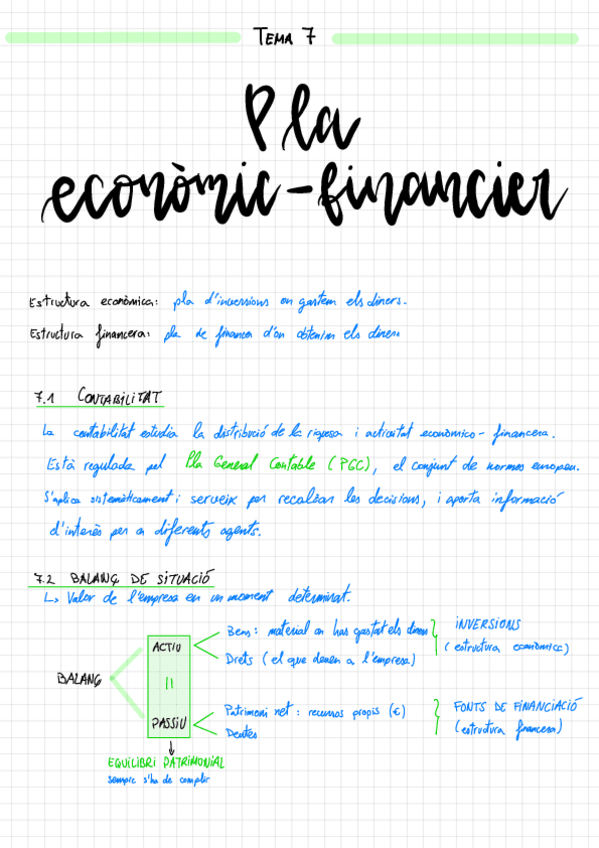 TEMA 7
Pla
econòmic-financier
Estructura econòmica: pla d'inversions on gastem els diners.
Estructura financera: pla de finances d'on obtenim els diners
7.1 CONTABILITAT
La contabilitat estudia la distribució de la riquesa i activitat econòmico-financera.
Està regulada pel Pla General Contable (PGC), el conjunt de normes europeu.
S'aplica sistemàticament i serveix per recalzar les decisions, i aporta informació
d'interès per a diferents agents.
7.2 BALANÇ DE SITUACIÓ
↳ Valor de l'empresa en un moment determinat.
BALANÇ
ACTIU
Bens: material on has gastat els diners
Drets (el que deuen a l'empresa)
INVERSIONS
(estructura econòmica)
=
PASSIU
Patrimoni net: recursos propis (€)
Deutes
FONTS DE FINANCIACIÓ
(estructura financera)
EQUILIBRI PATRIMONIAL
sempre s'ha de complir